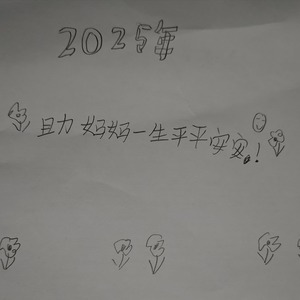 2025年
助妈妈一生平平安安!